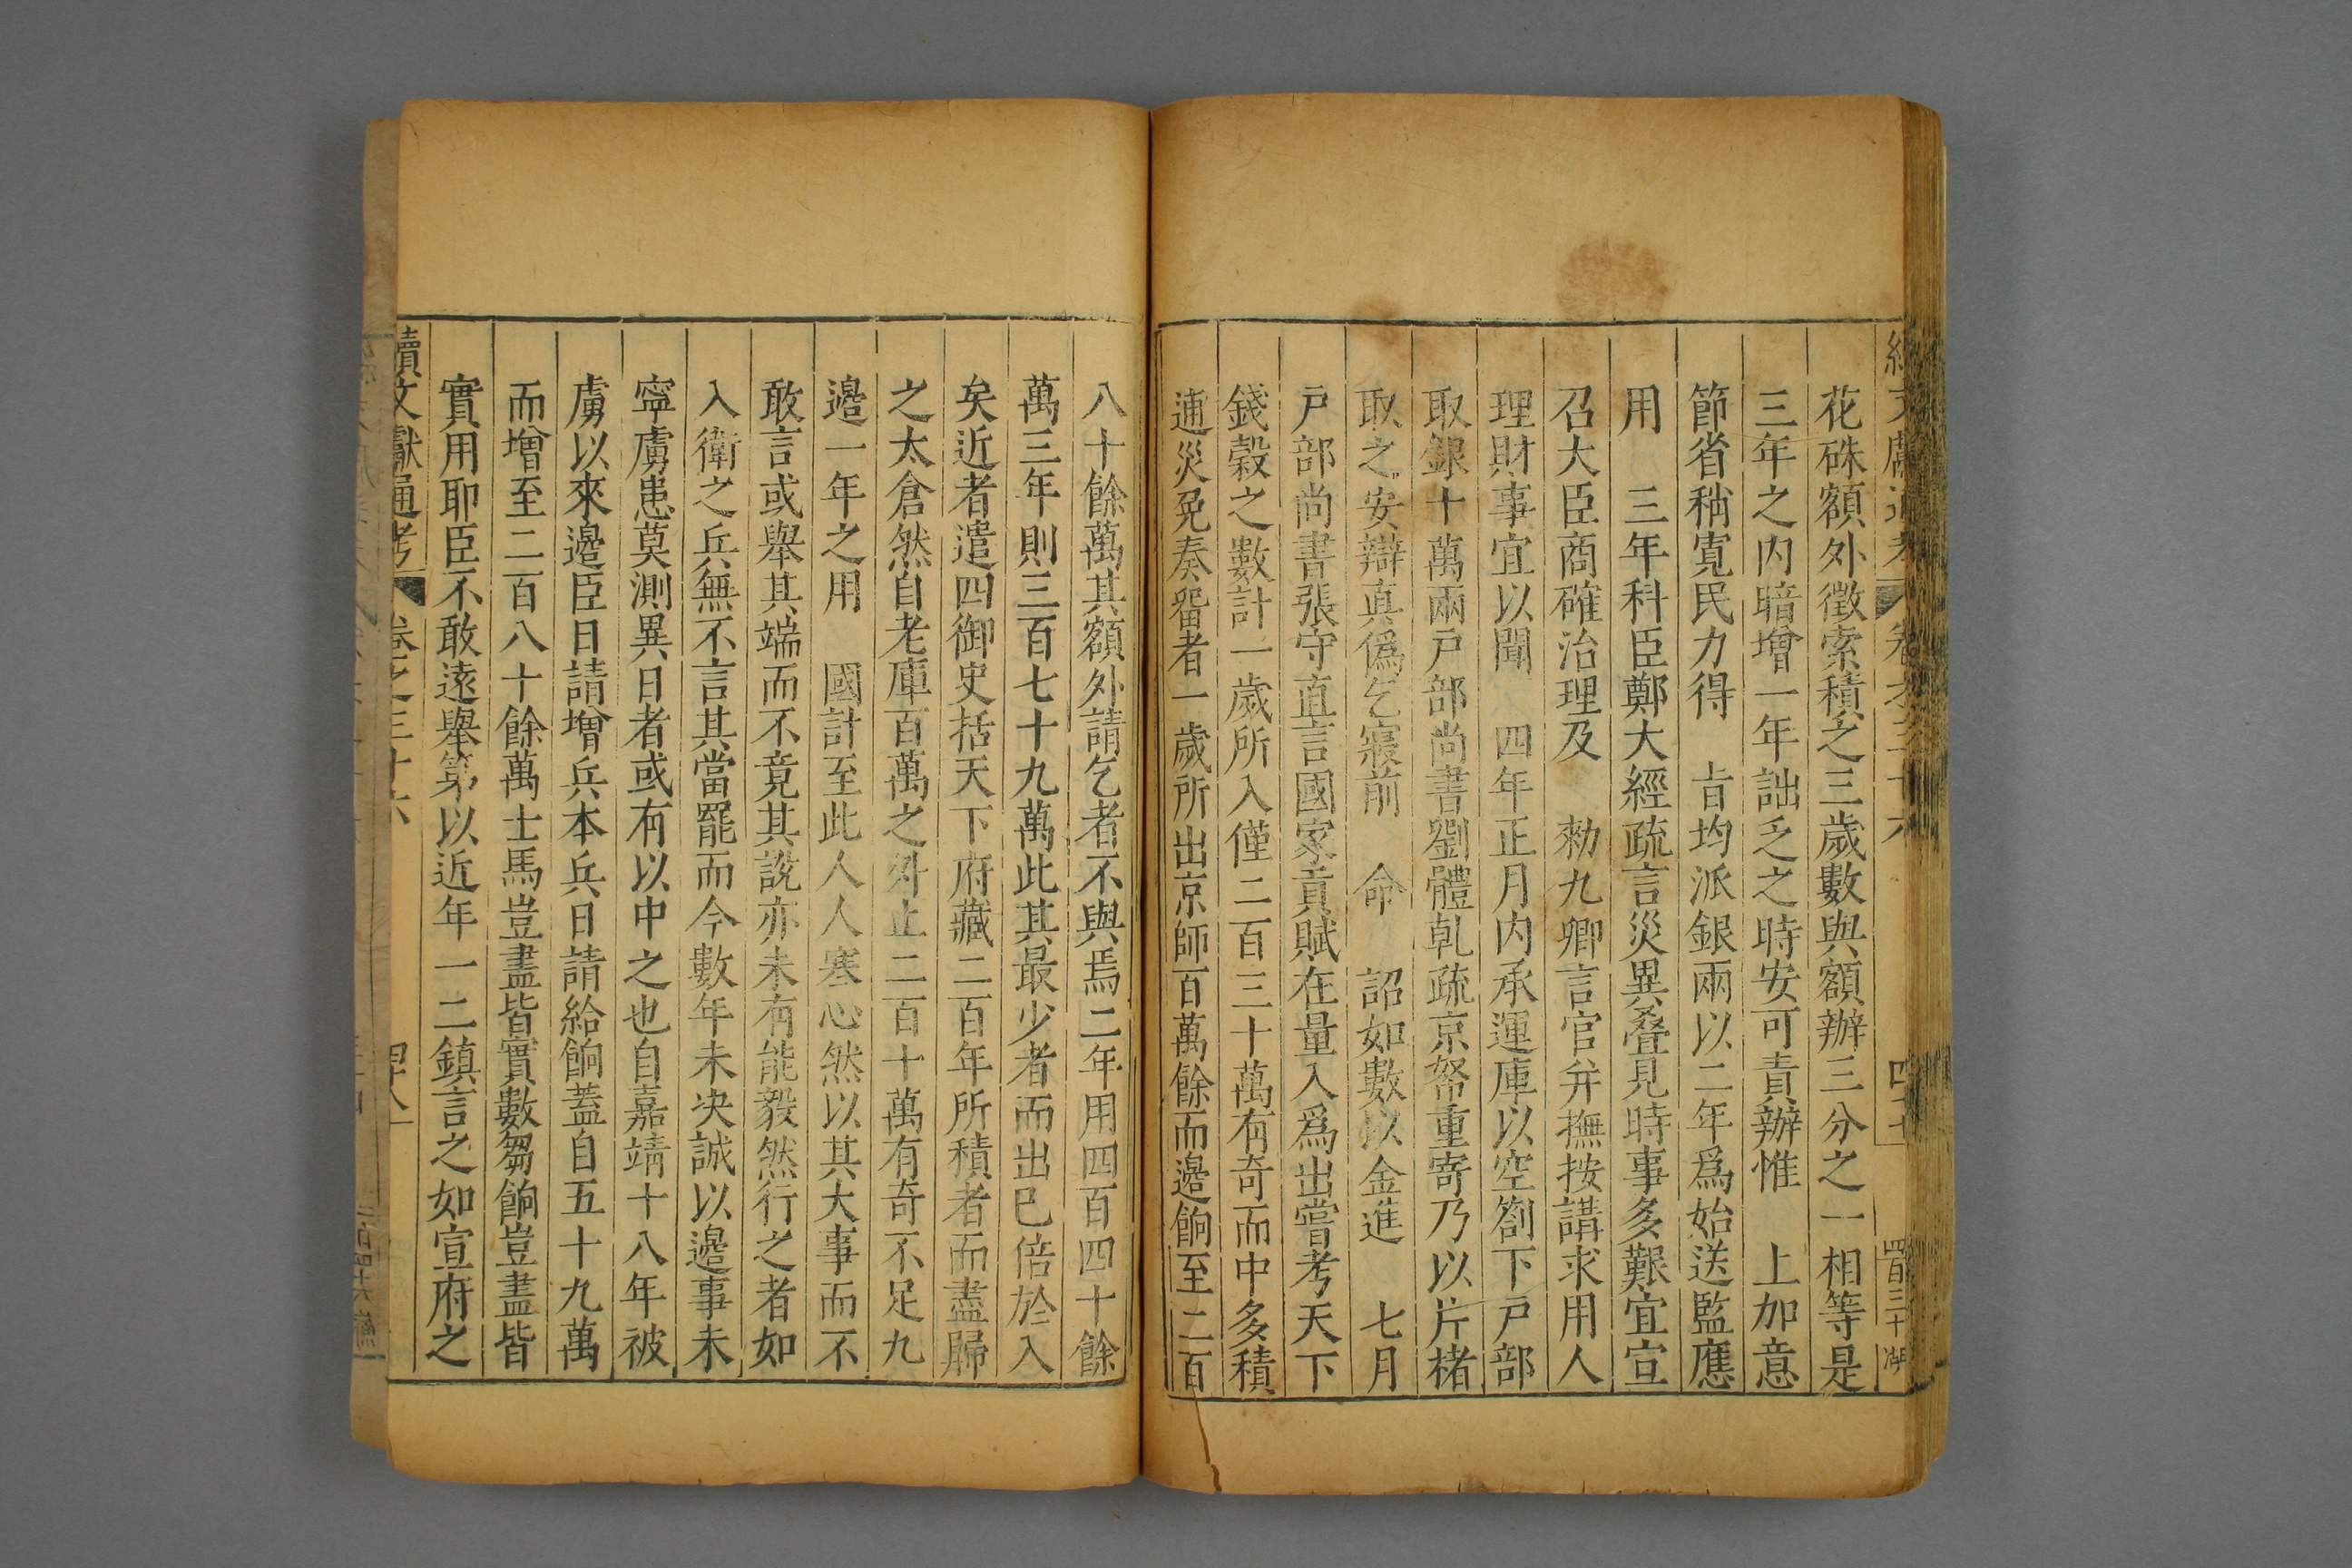 花硃額外徵索積之三歲數與額辦三分之一相等是
三年之内暗增一年詘乏之時安可責辦惟 上加意
節省稍寛民力得 㫖均派銀兩以二年爲始送監應
用 三年科臣鄭大經疏言災異叠見時事多艱宜宣
召大臣商確治理及 勑九卿言官并撫按講求用人
理財事宜以聞 四年正月内承運庫以空劄下戸部
取銀十萬兩戸部尚書劉體乹疏京帑重寄乃以片楮
取之安辯真僞乞寢前 命 詔如數以金進 七月
戸部尚書張守直言國家貢賦在量入爲出嘗考天下
錢穀之數計一歲所入僅二百三十萬有奇而中多積
逋災免奏畱者一歲所出京師百萬餘而邉餉至二百
八十餘萬其額外請乞者不與焉二年用四百四十餘
萬三年則三百七十九萬此其最少者而出巳倍於入
矣近者遣四御史括天下府藏二百年所積者而盡歸
之太倉然自老庫百萬之外止二百十萬有奇不足九
邉一年之用 國計至此人人寒心然以其大事而不
敢言或舉其端而不竟其說亦未有能毅然行之者如
入衛之兵無不言其當罷而今數年未决誠以邉事未
寧虜患莫測異日者或有以中之也自嘉靖十八年被
虜以來邉臣日請增兵本兵日請給餉蓋自五十九萬
而增至二百八十餘萬士馬豈盡皆實數芻餉豈盡皆
實用耶臣不敢遠舉第以近年一二鎮言之如宣府之
續文獻通考 卷之三十六 四十八